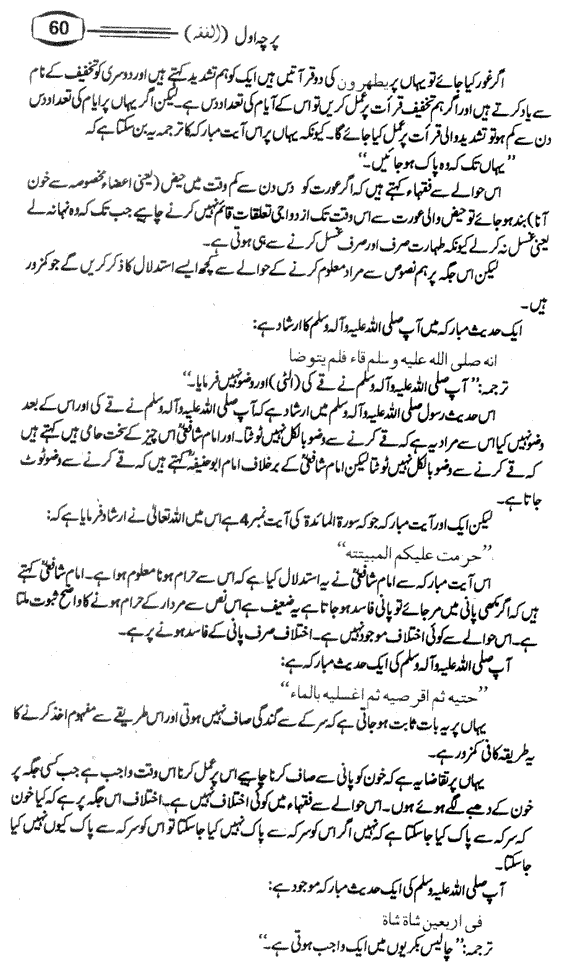 60
پرچہ اول (الفقہ)
اگر غور کیا جائے تو یہاں پر یطھرون کی دو قرآتیں ہیں ایک کو ہم تشدید کہتے ہیں اور دوسری کو تخفیف کے نام
سے یاد کرتے ہیں اور اگر ہم تخفیف قرأت پر عمل کریں تو اس کے آیام کی تعداد دس ہے۔ لیکن اگر یہاں پر ایام کی تعداد دس
دن سے کم ہو تو تشدید والی قرأت پر عمل کیا جائے گا۔ کیونکہ یہاں پر اس آیت مبارکہ کا ترجمہ یہ بن سکتا ہے کہ
”یہاں تک کہ وہ پاک ہو جائیں۔“
اس حوالے سے فقہاء کہتے ہیں کہ اگر عورت کو دس دن سے کم وقت میں حیض (یعنی اعضاء مخصوصہ سے خون
آنا) بند ہو جائے تو حیض والی عورت سے اس وقت تک ازدواجی تعلقات قائم نہیں کرنے چاہیے جب تک کہ وہ نہا نہ لے
یعنی غسل نہ کر لے کیونکہ طہارت صرف اور صرف غسل کرنے سے ہی ہوتی ہے۔
لیکن اس جگہ پر ہم نصوص سے مراد معلوم کرنے کے حوالے سے کچھ ایسے استدلال کا ذکر کریں گے جو کمزور
ہیں۔
ایک حدیث مبارکہ میں آپ صلی اللہ علیہ وآلہ وسلم کا ارشاد ہے:
انه صلى الله عليه وسلم قاء فلم يتوضا
ترجمہ: ”آپ صلی اللہ علیہ وآلہ وسلم نے قے کی (الٹی) اور وضو نہیں فرمایا۔“
اس حدیث رسول صلی اللہ علیہ وآلہ وسلم میں ارشاد ہے کہ آپ صلی اللہ علیہ وآلہ وسلم نے قے کی اور اس کے بعد
وضو نہیں کیا اس سے مراد یہ ہے کہ قے کرنے سے وضو بالکل نہیں ٹوٹتا۔ اور امام شافعیؒ اس چیز کے سخت حامی ہیں کہتے ہیں
کہ قے کرنے سے وضو بالکل نہیں ٹوٹتا لیکن امام شافعیؒ کے برخلاف امام ابوحنیفہؒ کہتے ہیں کہ قے کرنے سے وضو ٹوٹ
جاتا ہے۔
لیکن ایک اور آیت مبارکہ جو کہ سورۃ المائدۃ کی آیت نمبر 4 ہے اس میں اللہ تعالیٰ نے ارشاد فرمایا ہے کہ:
”حرمت عليكم الميتته“
اس آیت مبارکہ سے امام شافعیؒ نے یہ استدلال کیا ہے کہ اس سے حرام ہونا معلوم ہوا ہے۔ امام شافعیؒ کہتے
ہیں کہ اگر مکھی پانی میں مر جائے تو پانی فاسد ہو جاتا ہے یہ ضعیف ہے اس نص سے مردار کے حرام ہونے کا واضح ثبوت ملتا
ہے۔ اس حوالے سے کوئی اختلاف موجود نہیں ہے۔ اختلاف صرف پانی کے فاسد ہونے پر ہے۔
آپ صلی اللہ علیہ وآلہ وسلم کی ایک حدیث مبارکہ ہے:
”حتيه ثم اقرصيه ثم اغسليه بالماء“
یہاں پر یہ بات ثابت ہو جاتی ہے کہ سرکے سے گندگی صاف نہیں ہوتی اور اس طریقے سے مفہوم اخذ کرنے کا
یہ طریقہ کافی کمزور ہے۔
یہاں پر تقاضا یہ ہے کہ خون کو پانی سے صاف کرنا چاہیے اس پر عمل کرنا اس وقت واجب ہے جب کسی جگہ پر
خون کے دھبے لگے ہوئے ہوں۔ اس حوالے سے فقہاء میں کوئی اختلاف نہیں ہے۔ اختلاف اس جگہ پر ہے کہ کیا خون
کہ سرکہ سے پاک کیا جاسکتا ہے کہ نہیں اگر اس کو سرکہ سے پاک نہیں کیا جاسکتا تو اس کو سرکہ سے پاک کیوں نہیں کیا
جاسکتا۔
آپ صلی اللہ علیہ وسلم کی ایک حدیث مبارکہ موجود ہے:
فى اربعين شاة شاة
ترجمہ: ”چالیس بکریوں میں ایک واجب ہوتی ہے۔“